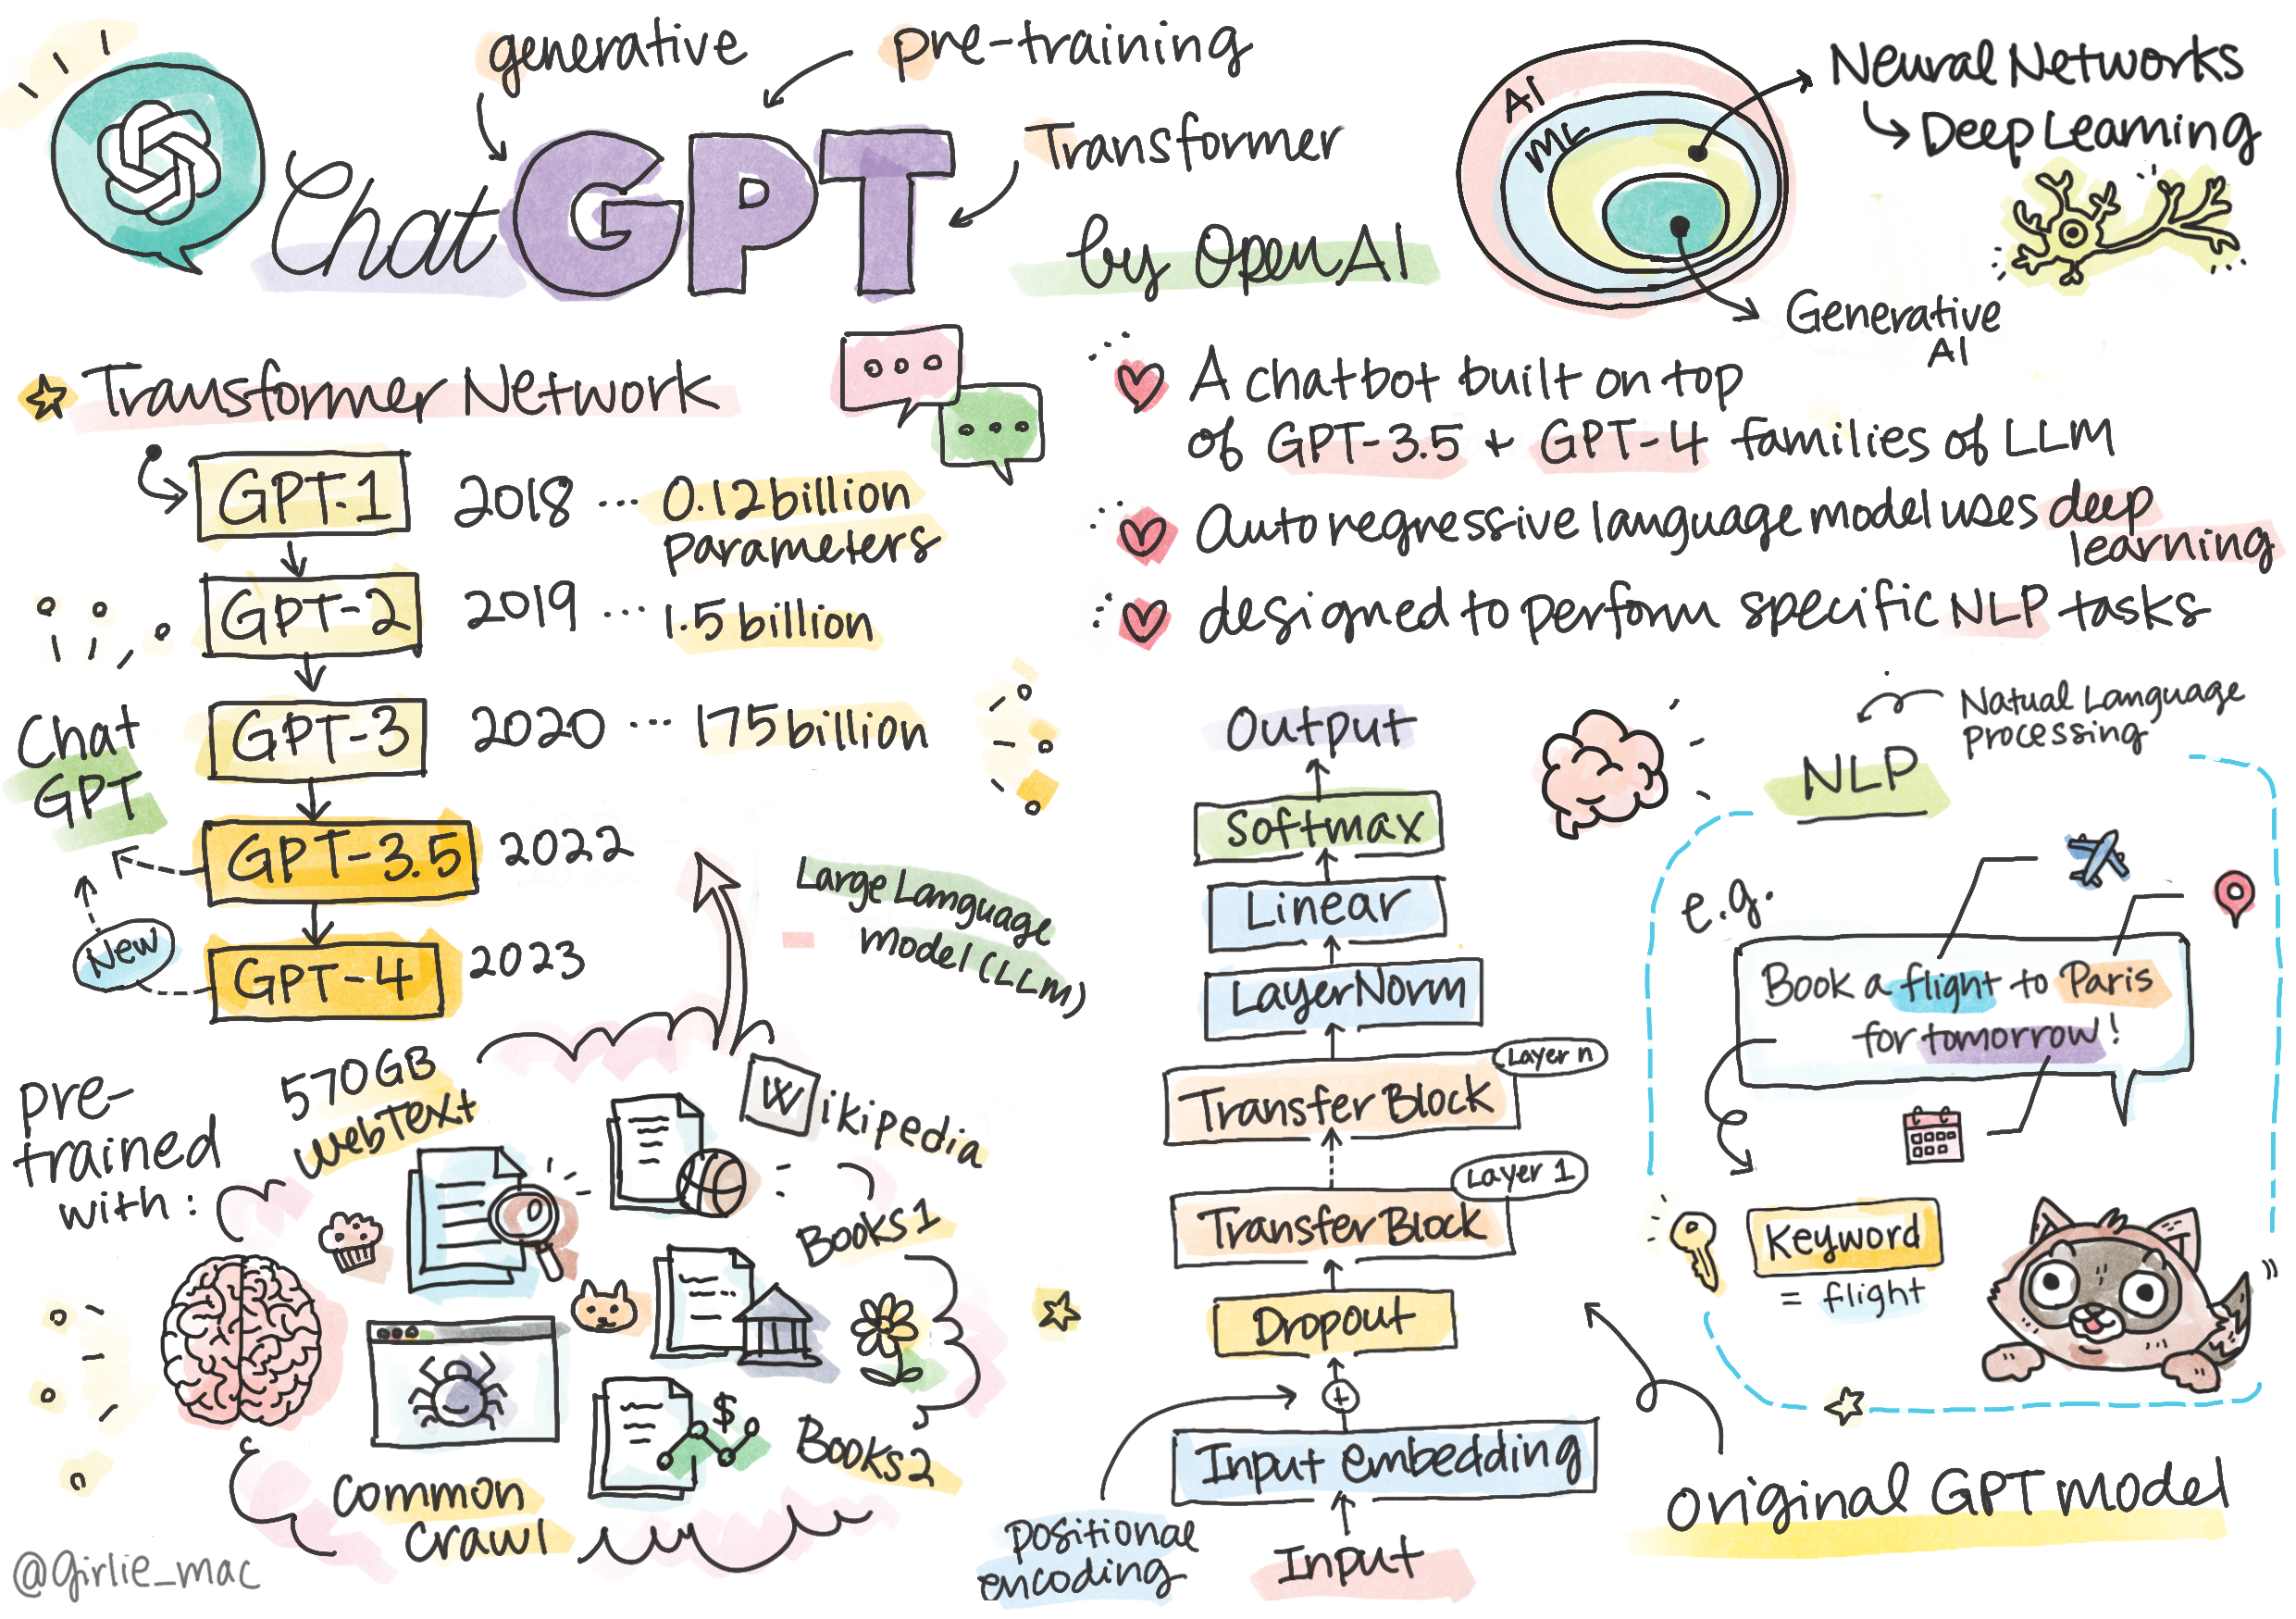 generative
pre-training
Transformer
Chat GPT
by OpenAI
AI
ML
Neural Networks
Deep Learning
Generative
AI
Transformer Network
GPT-1
2018 ... 0.12 billion
parameters
GPT-2
2019 ... 1.5 billion
GPT-3
2020 ... 175 billion
Chat
GPT
GPT-3.5
2022
New
GPT-4
2023
Large Language
Model (LLM)
A chatbot built on top
of GPT-3.5 + GPT-4 families of LLM
Autoregressive language model uses deep
learning
designed to perform specific NLP tasks
pre-
trained
with:
570GB
WebText
Wikipedia
Books1
$
Books2
Common
Crawl
@girlie_mac
Output
Softmax
Linear
LayerNorm
Layer n
Transfer Block
Layer 1
Transfer Block
Dropout
+
Input embedding
positional
encoding
Input
Natual Language
processing
NLP
e.g.
Book a flight to Paris
for tomorrow!
Keyword
= flight
original GPT model